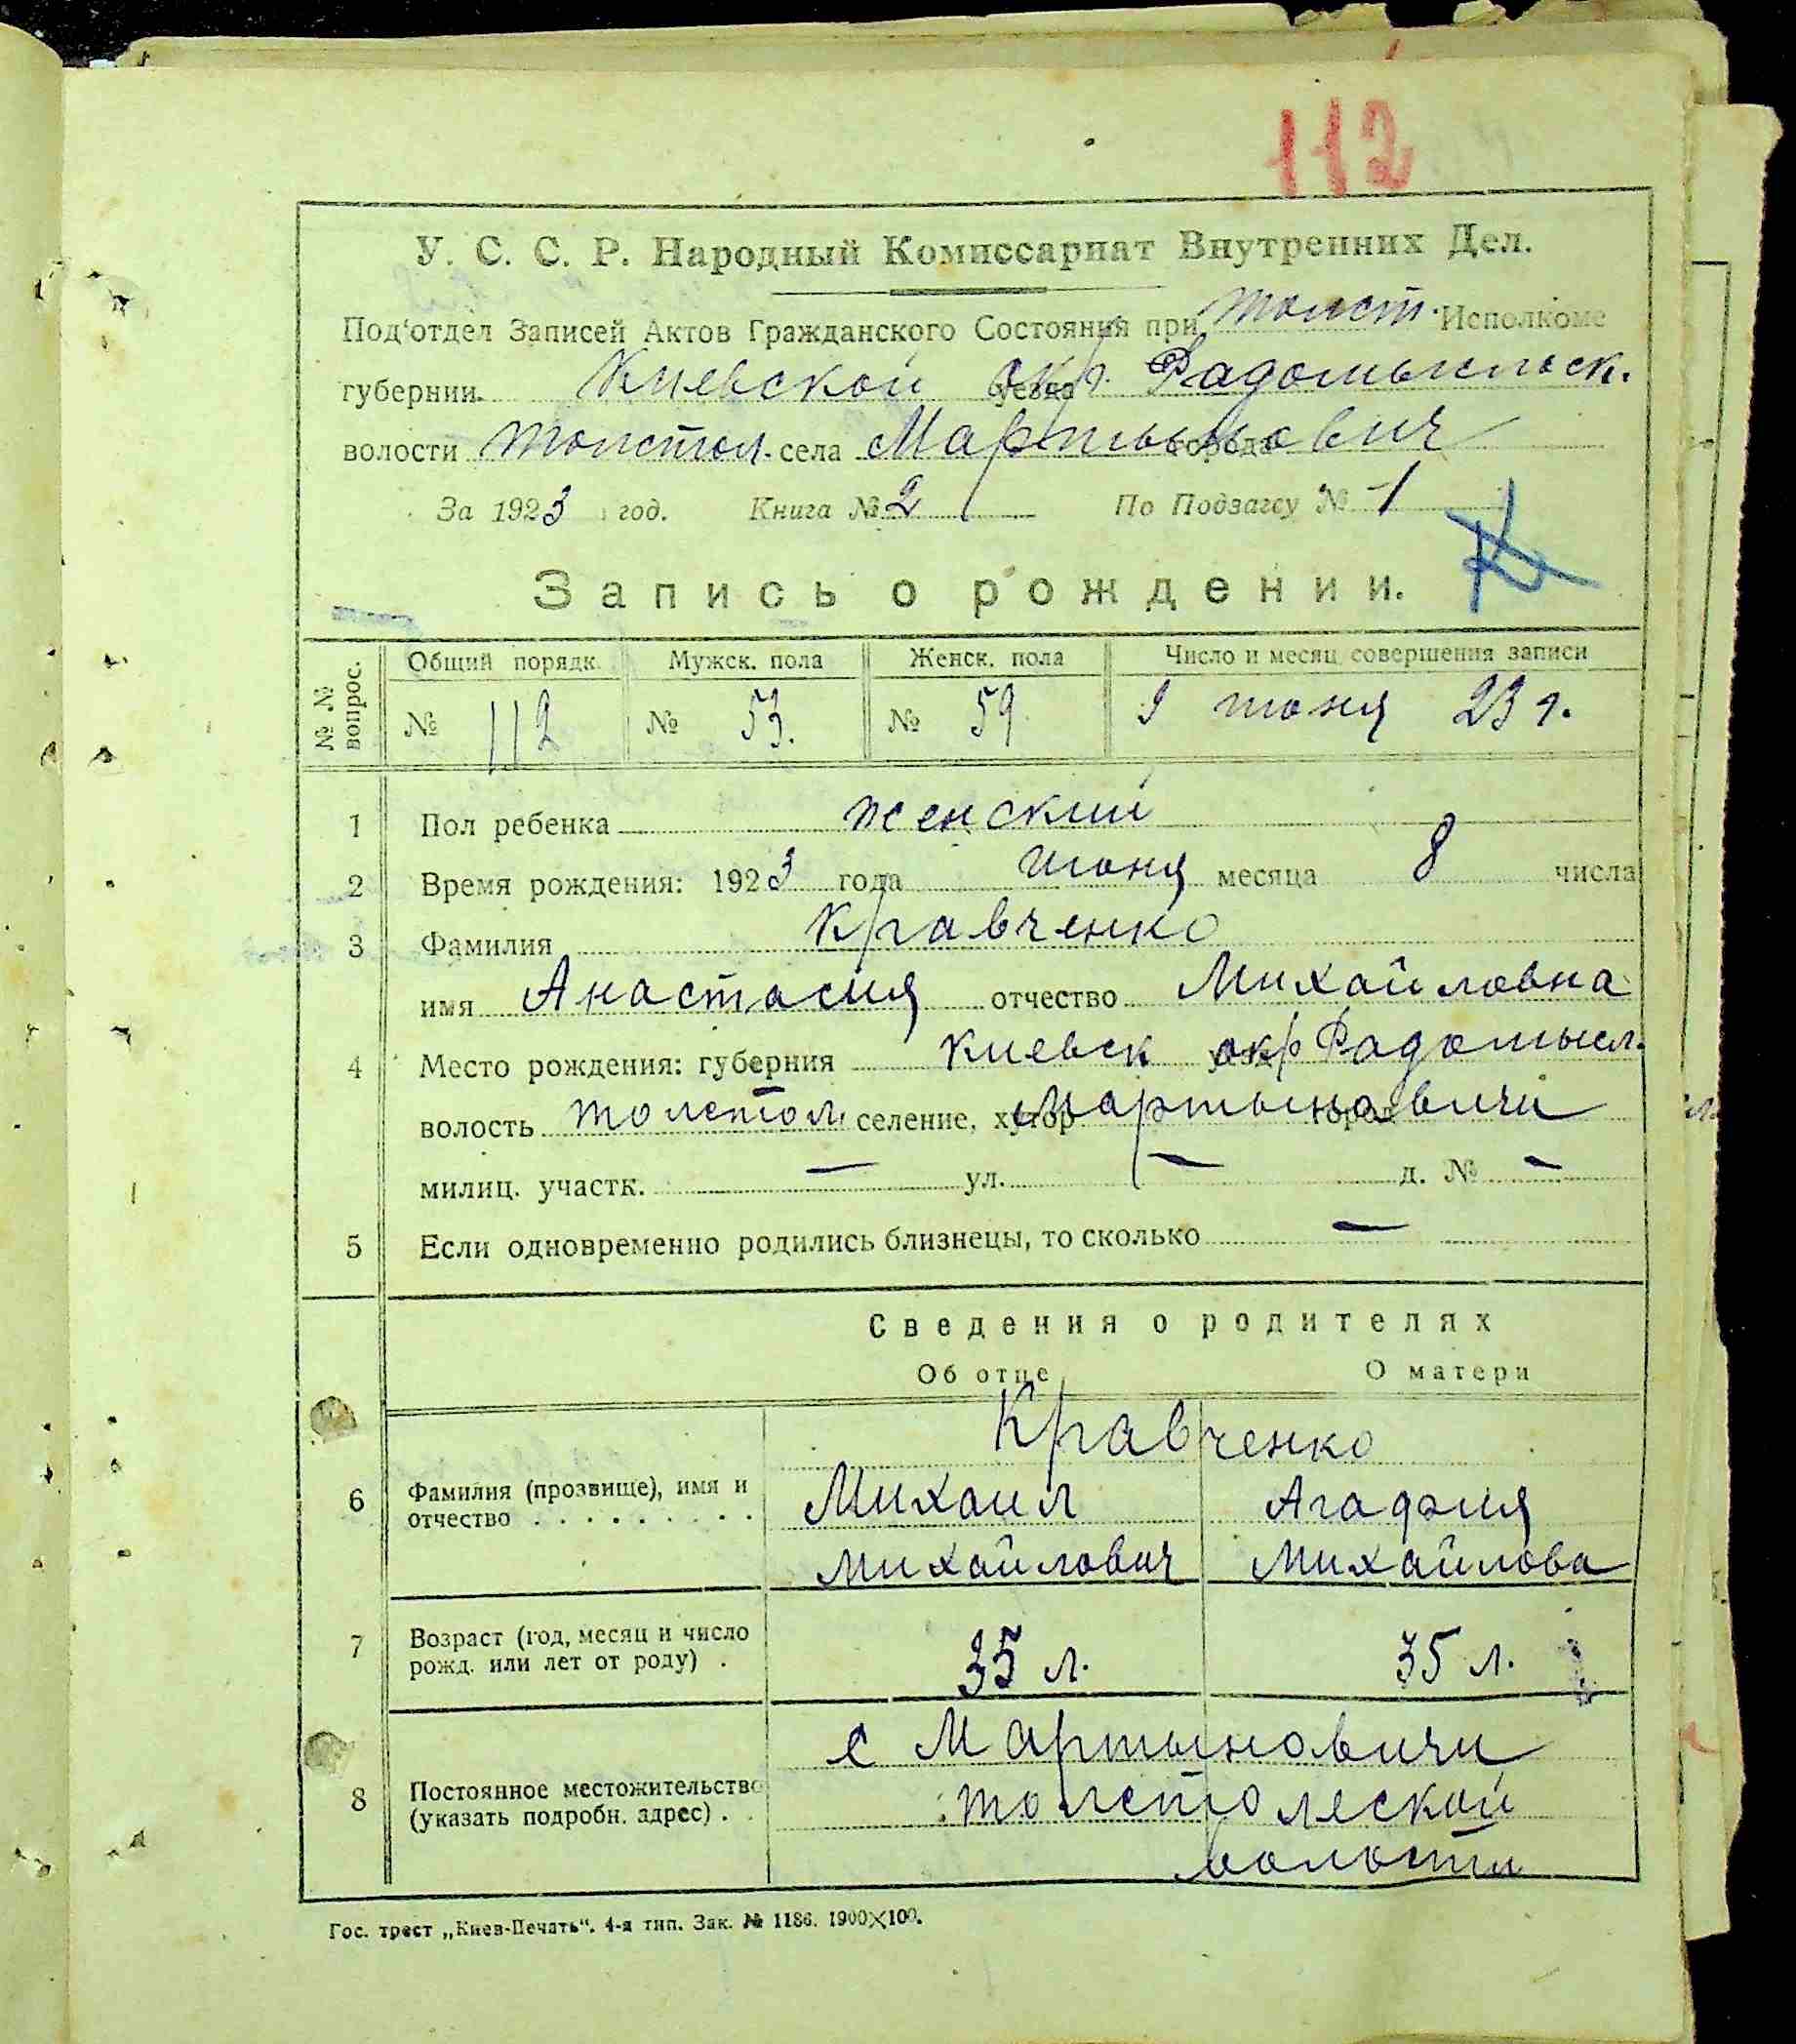 112
У. С. С. Р. Народный Комиссариат Внутренних Дел.
Под'отдел Записей Актов Гражданского Состояния при Толст. Исполкоме
губернии Киевской окр. Радомысльск.
волости Толстол. села Мартынович
За 1923 год. Книга № 2 По Подзагсу № 1
Запись о рождении.
№ № вопрос. Общий порядк. Мужск. пола Женск. пола Число и месяц совершения записи
№ 112 № 53. № 59 9 июня 23 г.
1 Пол ребенка женский
2 Время рождения: 1923 года июня месяца 8 числа
3 Фамилия Кравченко
имя Анастасия отчество Михайловна
4 Место рождения: губерния Киевск окр Радомысл.
волость Толстол. селение, хутор Мартыновичи
милиц. участк. — ул. — д. № —
5 Если одновременно родились близнецы, то сколько —
Сведения о родителях
Об отце О матери
Кравченко
6 Фамилия (прозвище), имя и Михаил Агафия
отчество . . . . . . . . . Михайлович Михайлова
7 Возраст (год, месяц и число
рожд. или лет от роду) . 35 л. 35 л.
с Мартыновичи
8 Постоянное местожительство Толстолеской
(указать подробн. адрес) . . волости
Гос. трест „Киев-Печать“. 4-я тип. Зак. № 1186. 1900×100.